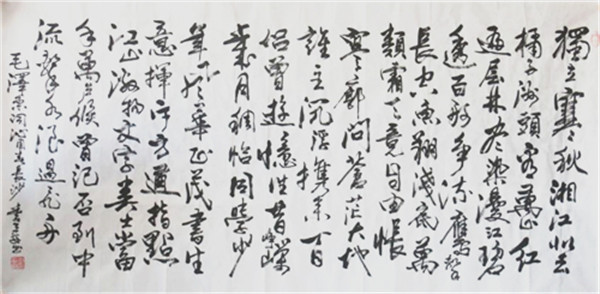 獨立寒秋湘江北去
橘子洲頭看萬山紅
遍層林盡染漫江碧
透百舸爭流鷹擊
長空魚翔淺底萬
類霜天竟自由悵
寥廓問蒼茫大地
誰主沉浮攜來百
侶曾遊憶往昔崢嶸
歲月稠恰同學少
年風華正茂書生
意揮斥方遒指點
江山激揚文字糞土當
年萬戶侯曾記否到中
流擊水浪遏飛舟
毛澤東詞沁園春長沙